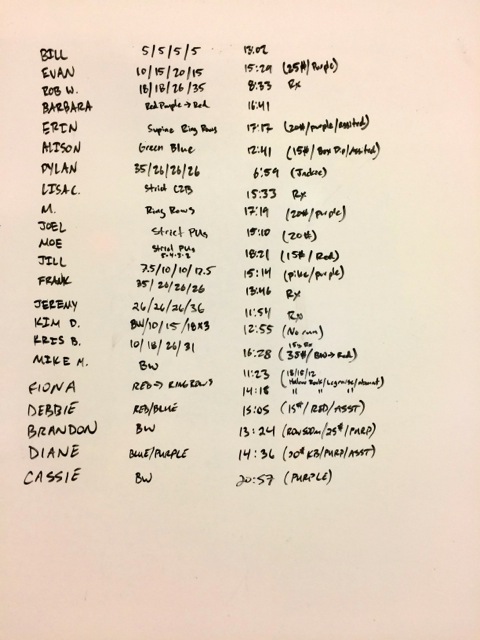 BILL 5/5/5/5 13:02
EVAN 10/15/20/15 15:29 (25#/Purple)
ROB W. 18/18/26/35 8:33 Rx
BARBARA Red Purple → Red 16:41
ERIN Supine Ring Rows 17:17 (20#/purple/assisted)
ALISON Green Blue 12:41 (15#/Box Dip/Assisted)
DYLAN 35/26/26/26 6:59 (Jackie)
LISA C. Strict C2B 15:33 Rx
M. Ring Rows 17:19 (20#/purple)
JOEL Strict PUs 15:10 (20#)
MOE Strict PUs 5-4-3-2 18:21 (15#/Red)
JILL 7.5/10/10/12.5 15:14 (pike/purple)
FRANK 35/26/26/26 13:46 Rx
JEREMY 26/26/26/36 11:54 Rx
KIM D. BW/10/15/18x3 12:55 (No run)
KRIS B. 10/18/26/31 16:28 (35#/BW → Red)
MIKE M. BW 11:23 (18/15/12
FIONA RED → RING ROWS 14:18 " " "
DEBBIE RED/BLUE 15:05 (15#/RED/ASST)
BRANDON BW 13:24 (ROW 500m/25#/PURP)
DIANE BLUE/PURPLE 14:36 (20# KB/PURP/ASST)
CASSIE BW 20:57 (PURPLE)